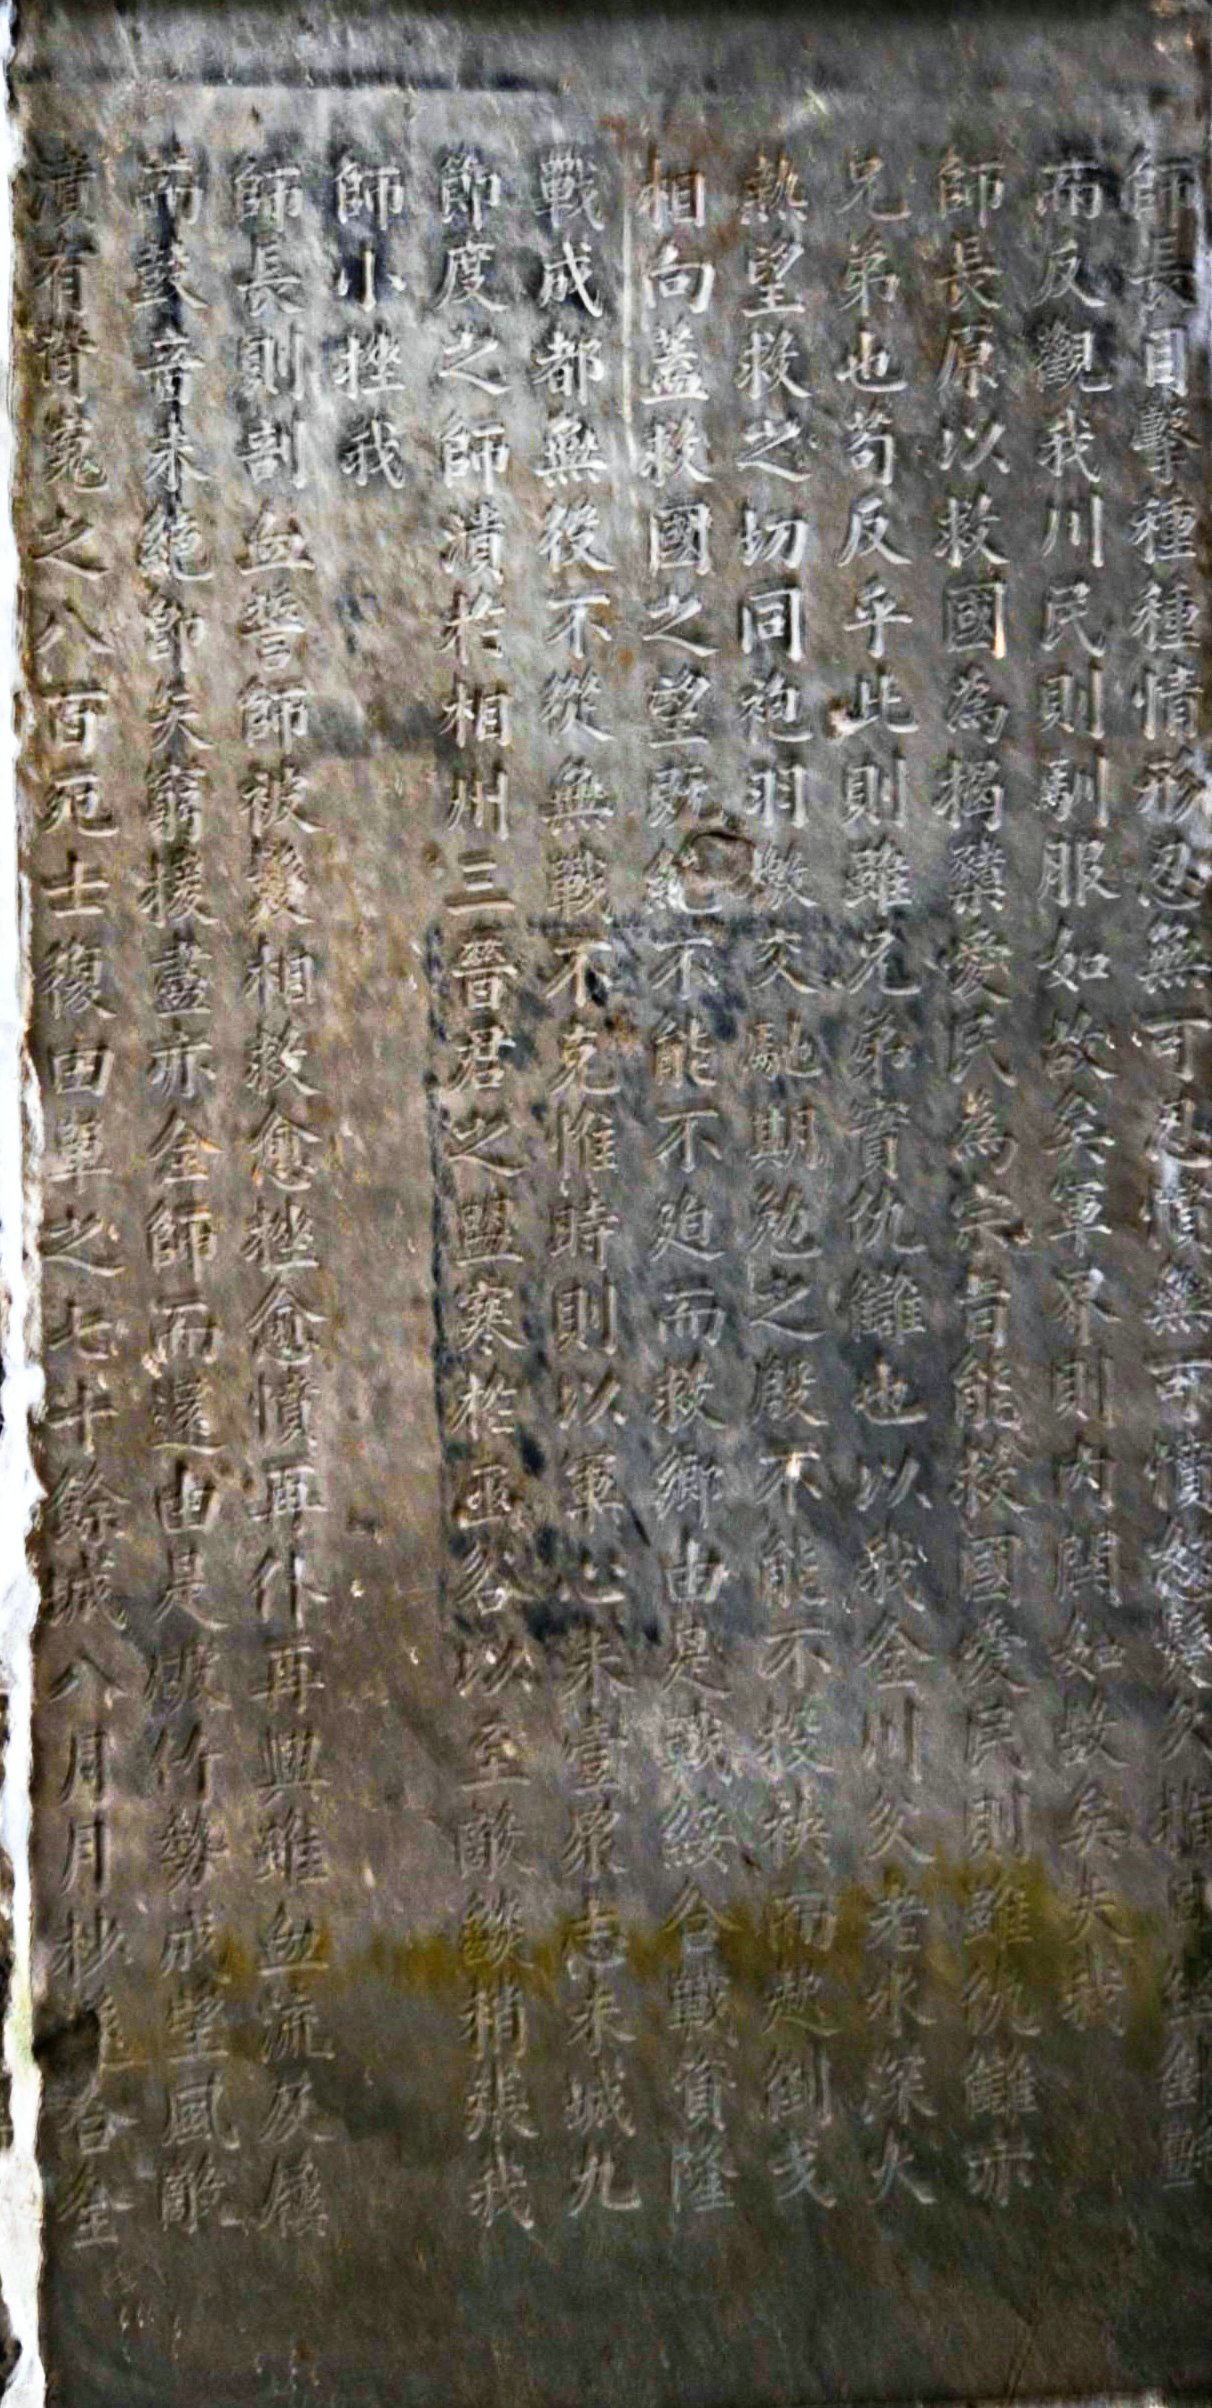 師長目擊種種情形忍無可忍憤無可憤怒髮
而反觀我川民則馴服如故矣軍界則內鬨如故矣失我
師長原以救國為揭櫫愛民為宗旨能救國愛民則雖仇讎亦
兄弟也苟反乎此則雖兄弟實仇讎也以我全川父老水深火
熱望救之切同袍羽檄交馳期勉之殷不能不投袂而起倒戈
相向蓋救國之望既絕不能不迫而救鄉由是戰綏合戰資隆
戰成都無役不從無戰不克惟時則以軍心未壹眾志未城九
節度之師潰於相州三晉君之盟寒於巫谷以至敵燄稍張我
師小挫我
師長則剖血誓師被髮相救愈挫愈憤再仆再興雖血流及屨
而鼓音未絕卽矢窮援盡亦全師而還由是破竹勢成望風敵
潰有賁惫之八百死士復田單之七十餘城八月月杪